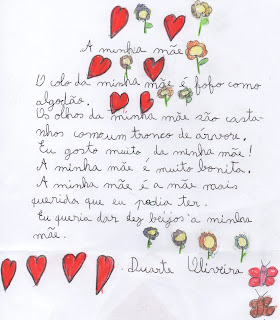 A minha mãe
O colo da minha mãe é fofo como
algodão.
Os olhos da minha mãe são casta-
nhos como um tronco de árvore.
Eu gosto muito da minha mãe!
A minha mãe é muito bonita.
A minha mãe é a mãe mais
querida que eu podia ter.
Eu queria dar dez beijos à minha
mãe.
Duarte Oliveira